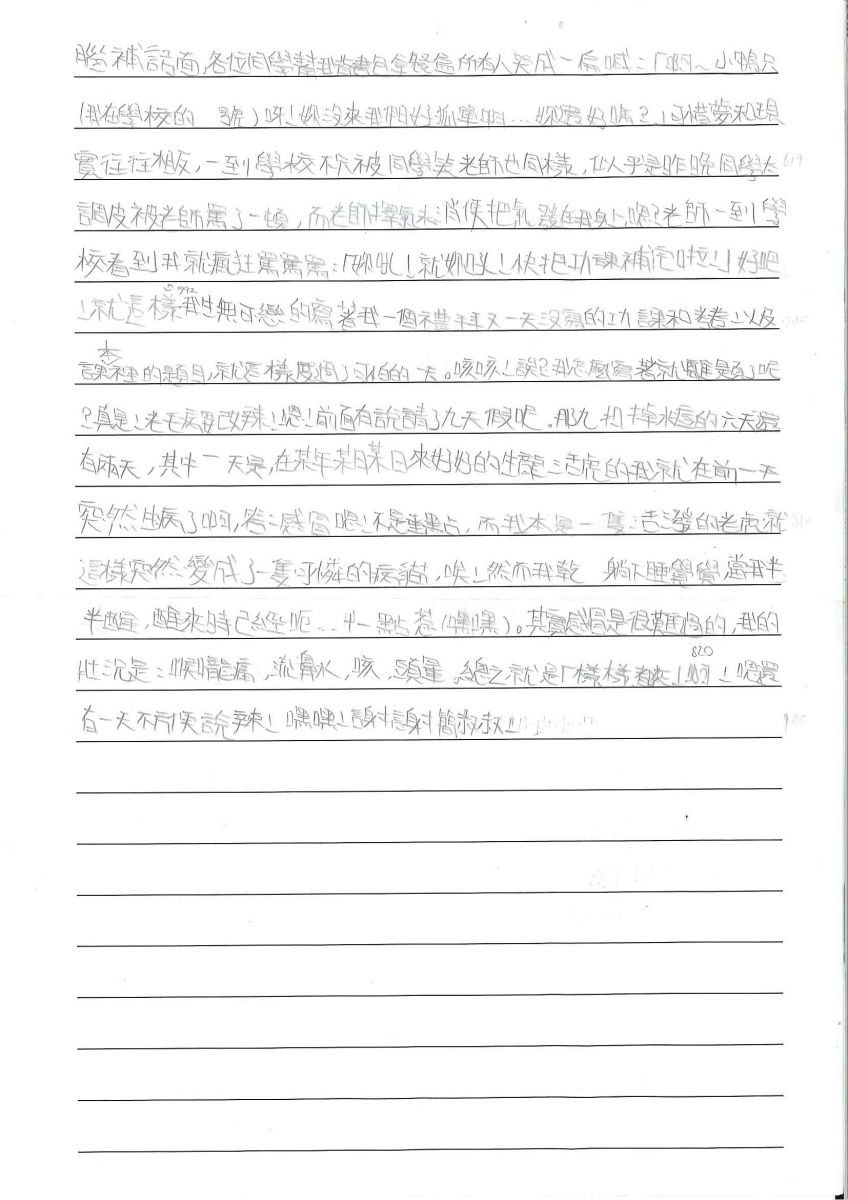 腦補話面,各位同學幫我背書包拿餐盒所有人哭成一扁喊:「啊~小鴨只
(我在學校的 號)呀!妳沒來我們好孤單啊...妳還好嗎?」可惜夢和現
實往往相反,一到學校不尔被同學笑老師也同樣,似乎是昨晚同學太 619
調皮被老師罵了一頓,而老師擇氣未肖便把氣發在我身上嗯?老師一到學
校看到我就瘋狂罵罵罵:「妳吼!就妳吼!快把功課補完啦!」好吧
!就這樣我生無可戀的寫著我一個禮拜又一天沒寫的功課和考卷!以及
課本裡的題目,就這樣度過了可怕的一天。咳咳!誒?我怎麼寫著就離題了呢
?真是!老毛病要改辣!嗯!前面有說請了九天假呢。那九扣掉水痘的六天還
有兩天,其中一天是,在某年某月某日來好好的生龍活虎的我就在前一天
突然生病了啊,咎!感冒嗯!不是重點,而我本是一隻活潑的老虎就
這樣突然變成了一隻可憐的病貓,唉!然而我乾 躺下睡覺覺,當我半
半醒,醒來時已經呃...十一點惹(嘿嘿)。其實感冒是很難過的,我的
壯況是:喉嚨痛,流鼻水,咳,頭暈。總之就是「樣樣都來」啊!嗯還
820
有一天不方便說辣!嘿嘿!謝謝簡叔叔!!